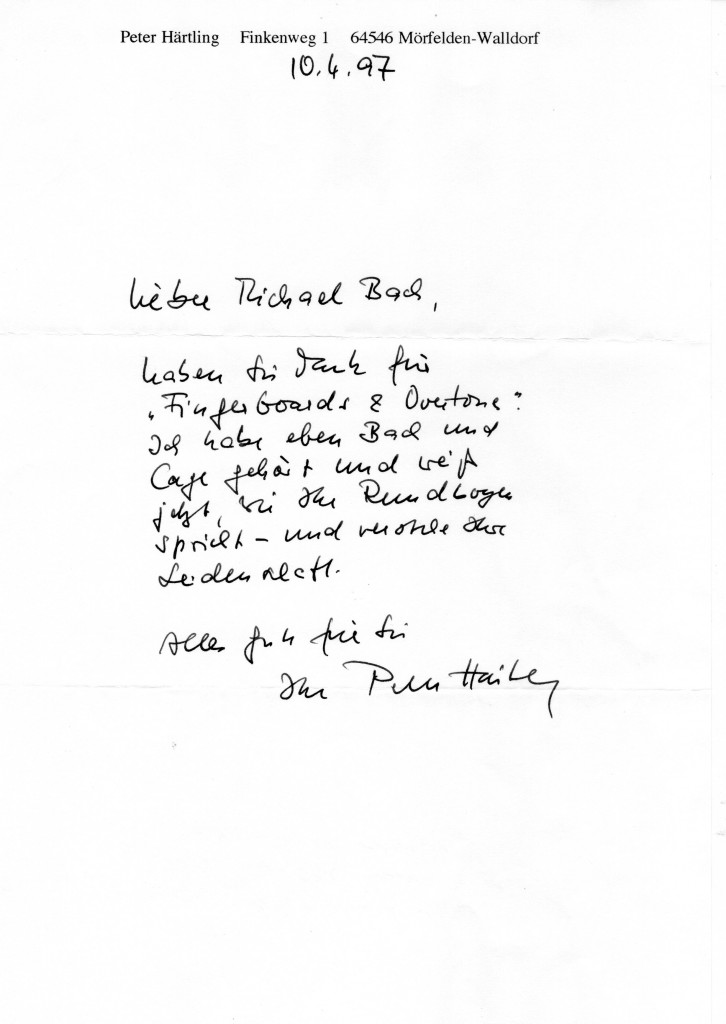 Peter Härtling Finkenweg 1 64546 Mörfelden-Walldorf
10.4.97
Lieber Michael Bach,
haben Sie Dank für
„Fingerboards & Overtone“.
Ich habe eben Bach und
Cage gehört und weiß
jetzt, wie Ihr Rundbogen
spricht – und verstehe Ihre
Leidenschaft.
Alles gute für Sie
Ihr Peter Härtling